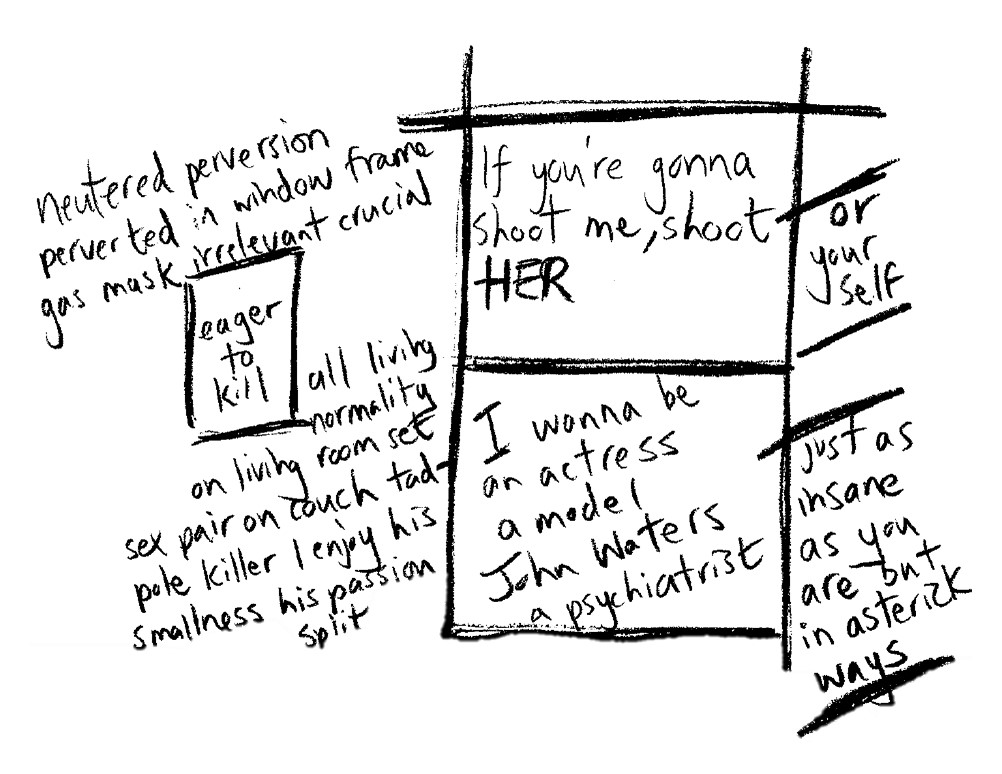 neutered perversion
perverted in window frame
gas mask irrelevant crucial
eager
to
kill
all living
normality
on living room set
sex pair on couch tad-
pole killer I enjoy his
smallness his passion
split
If you're gonna
shoot me, shoot
HER
or
your
self
I wanna be
an actress
a model
John Waters
a psychiatrist
just as
insane
as you
are but
in asterick
ways